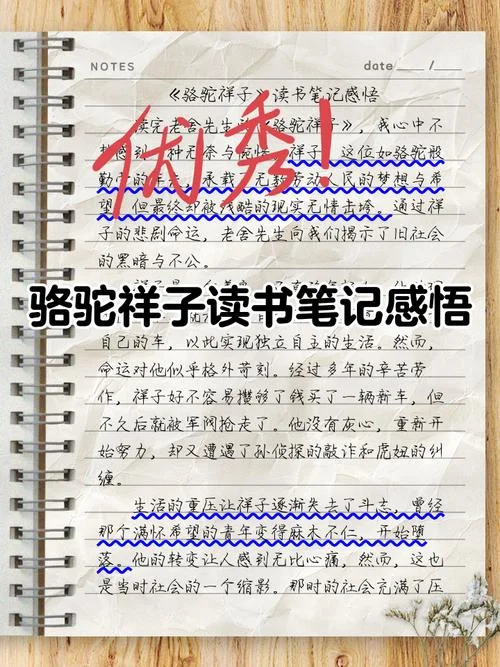 NOTES
date ___ / ___
《骆驼祥子》读书笔记感悟
读完老舍先生的《骆驼祥子》，我心中不
感到一种无奈与惋惜。祥子，这位如骆驼般
勤劳的车夫，承载了无数劳动人民的梦想与希
望，但最终却被残酷的现实无情击垮。通过祥
子的悲剧命运，老舍先生向我们揭示了旧社会
的黑暗与不公。
优秀！
骆驼祥子读书笔记感悟
自己的车，以此实现独立自主的生活。然而，
命运对他似乎格外苛刻。经过多年的辛苦劳
作，祥子好不容易攒够了钱买了一辆新车，但
不久后就被军阀抢走了。他没有灰心，重新开
始努力，却又遭遇了孙侦探的敲诈和虎妞的纠
缠。
生活的重压让祥子逐渐失去了斗志，曾经
那个满怀希望的青年变得麻木不仁，开始堕
落。他的转变让人感到无比心痛，然而，这也
是当时社会的一个缩影。那时的社会充满了压